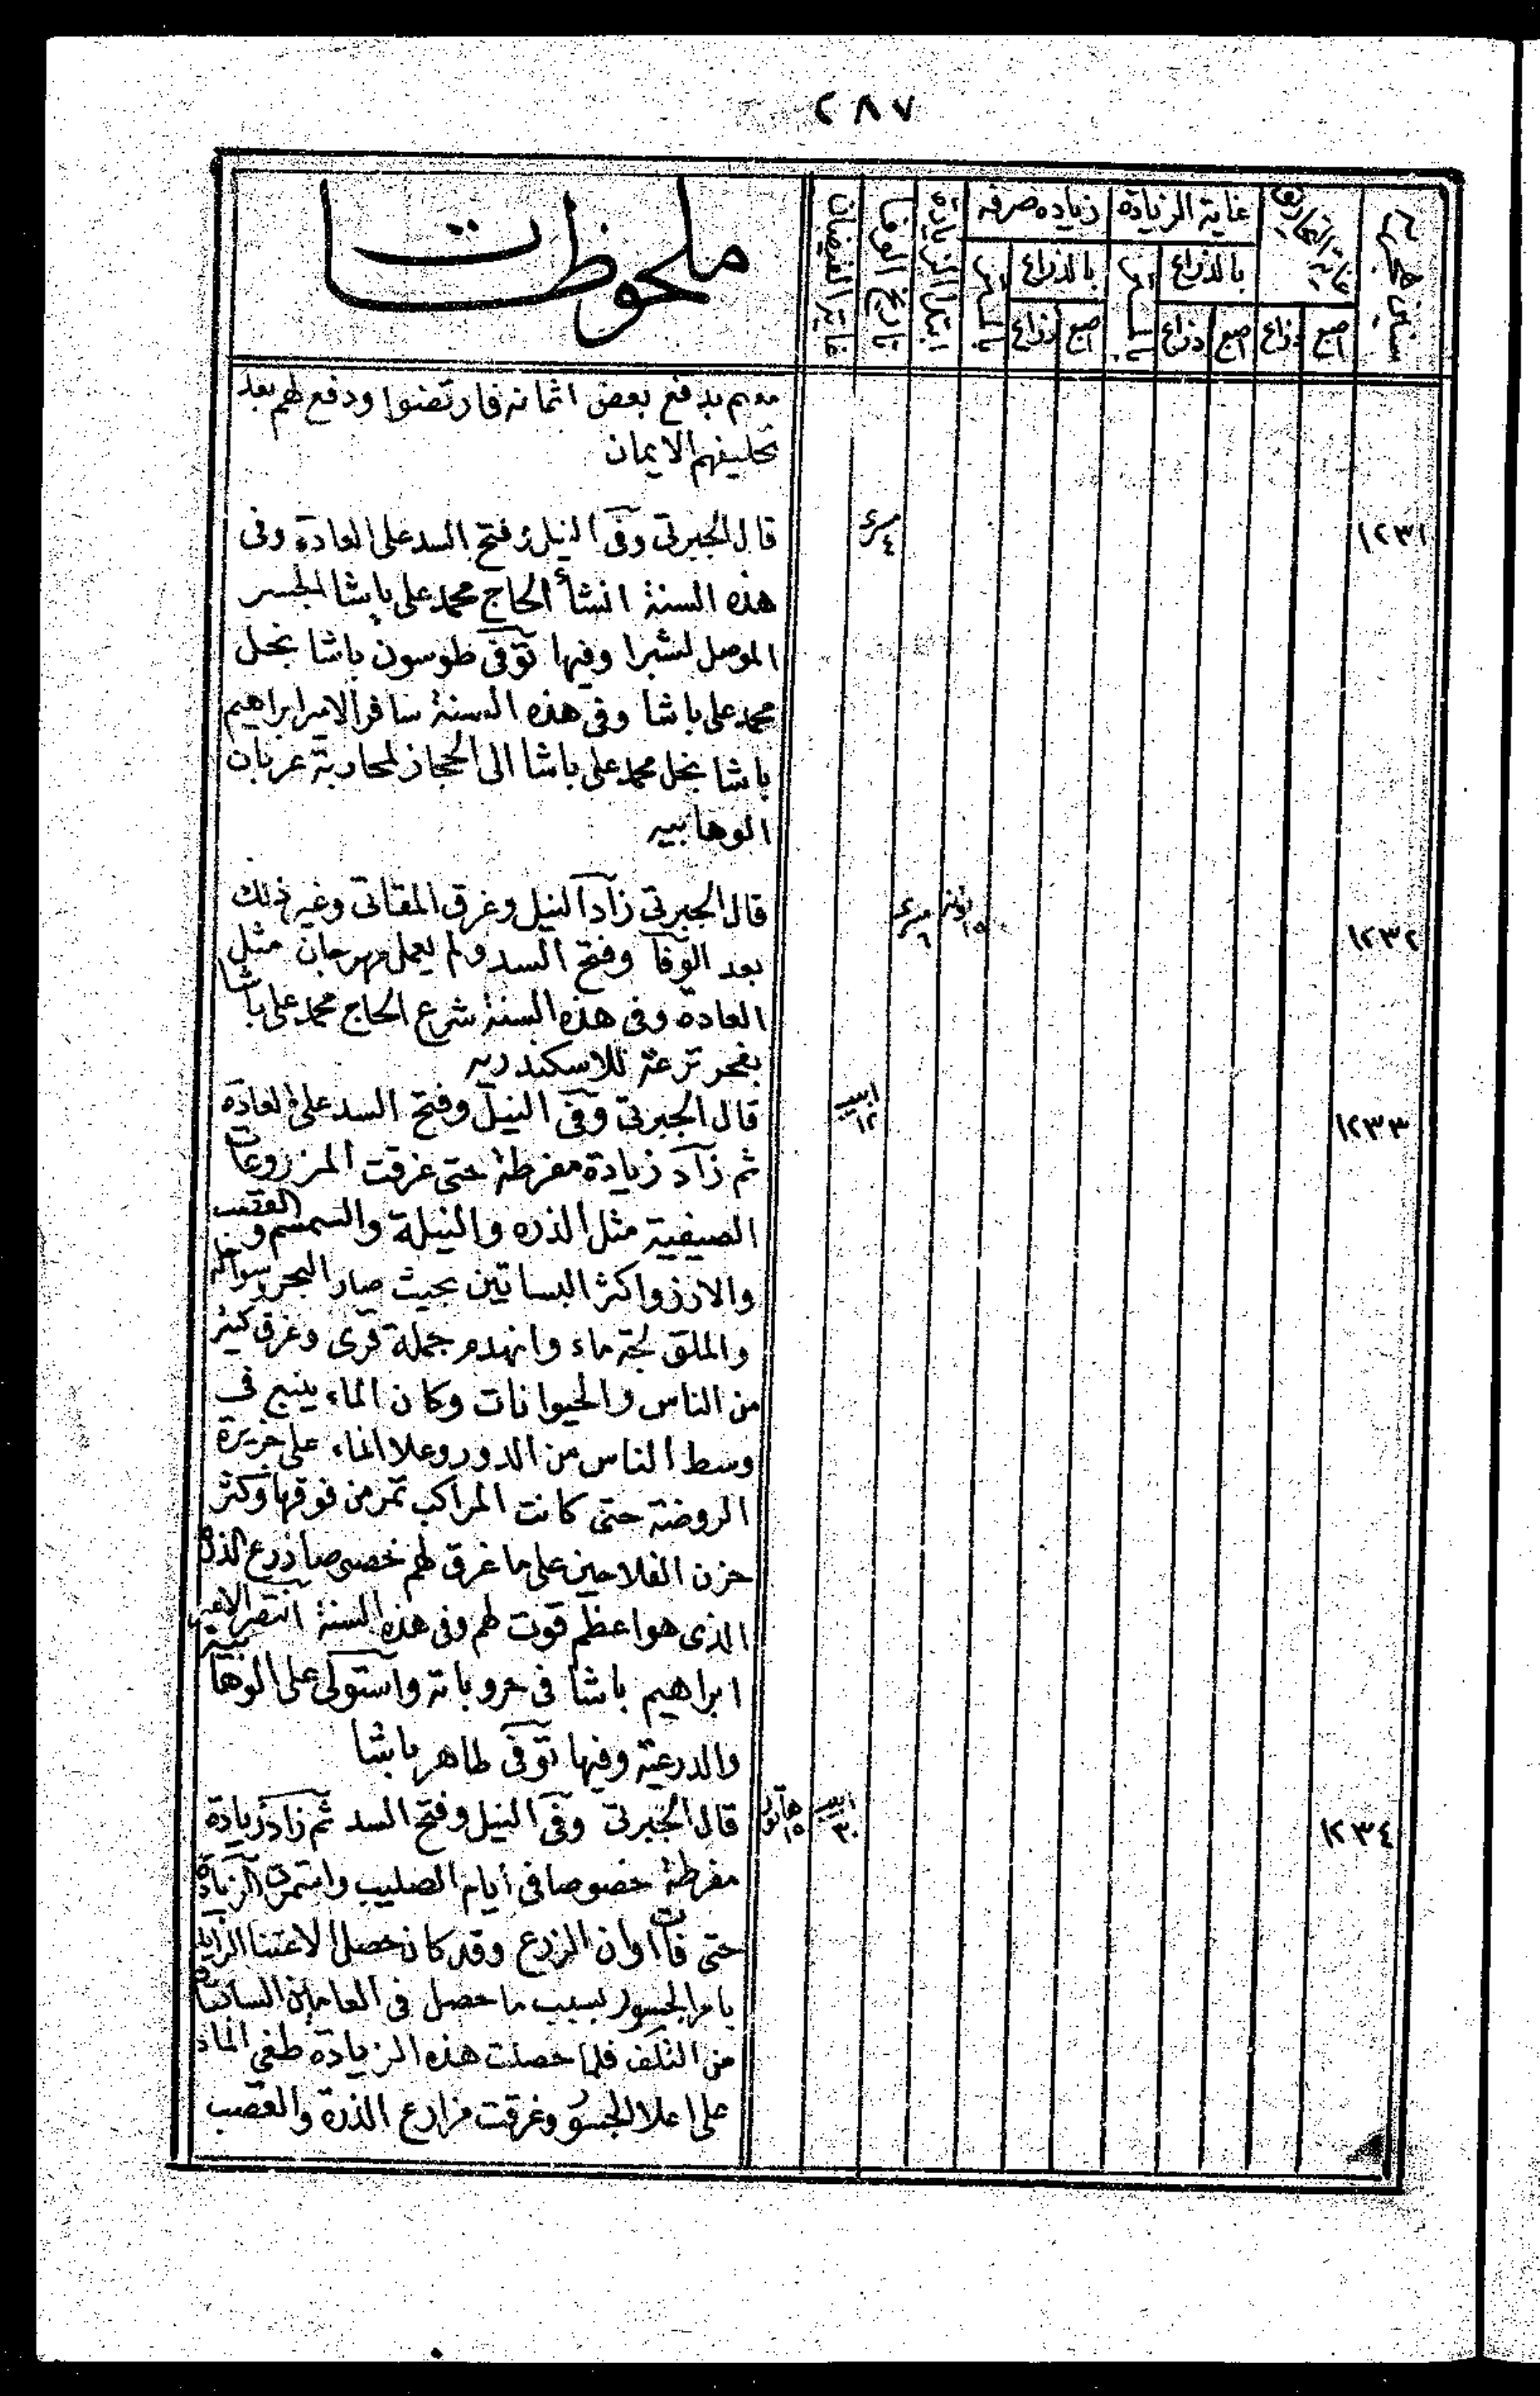 ٢٨٧
سنين هجرية
غاية التحاريق
اصبع
ذراع
غاية الزيادة
بالذراع
اصبع
ذراع
زياده صرفه
بالذراع
اصبع
ذراع
ابتدا الزيادة
تاريخ الوفا
غاية الفيضان
ملحوظات
منهم بدفع بعض اثمانه فارتضوا ودفع لهم بعد
تحليفهم الايمان
١٢٣١
مسرى ٤
قال الجبرتى وفى النيل وفتح السد على العادة وفى
هذه السنة انشأ الحاج محمد على باشا الجسر
الموصل لشبرا وفيها توفى طوسون باشا نجل
محمد على باشا وفى هذه السنة سافر الامير ابراهيم
باشا نجل محمد على باشا الى الحجاز لمحاربة عربان
الوهابيه
١٢٣٢
١٥
مسرى ٦
قال الجبرتى زاد النيل وغرق المقاتى وغير ذلك
بعد الوفا وفتح السد ولم يعمل مهرجان مثل
العادة وفى هذه السنة شرع الحاج محمد على باشا
بفحر ترعة للاسكندريه
١٢٣٣
ابيب ١٢
قال الجبرتى وفى النيل وفتح السد على العادة
ثم زاد زيادة مفرطة حتى غرقت المزروعات
الصيفية مثل الذره والنيلة والسمسم والقصب
والارز واكثر البساتين بحيث صار البحر وسواحله
والملق لجة ماء وانهدم جملة قرى وغرق كثير
من الناس والحيوانات وكان الماء ينبع فى
وسط الناس من الدور وعلا الماء على جزيرة
الروضة حتى كانت المراكب تمر من فوقها وكثر
حزن الفلاحين على ما غرق لهم خصوصا زرع الذره
الذى هو اعظم قوت لهم وفى هذه السنة انتصر الامير
ابراهيم باشا فى حروباته واستولى على الوهابية
والدرعية وفيها توفى طاهر باشا
١٢٣٤
ابيب ٣٠
هاتور ١٥
قال الجبرتى وفى النيل وفتح السد ثم زاد زيادة
مفرطة خصوصا فى أيام الصليب واستمرت الزيادة
حتى فات اوان الزرع وقد كان حصل الاعتنا الزايد
بامر الجسور بسبب ما حصل فى العامين السابقين
من التلف فلما حصلت هذه الزيادة طغى الماء
على اعلا الجسور وغرقت مزارع الذرة والقصب